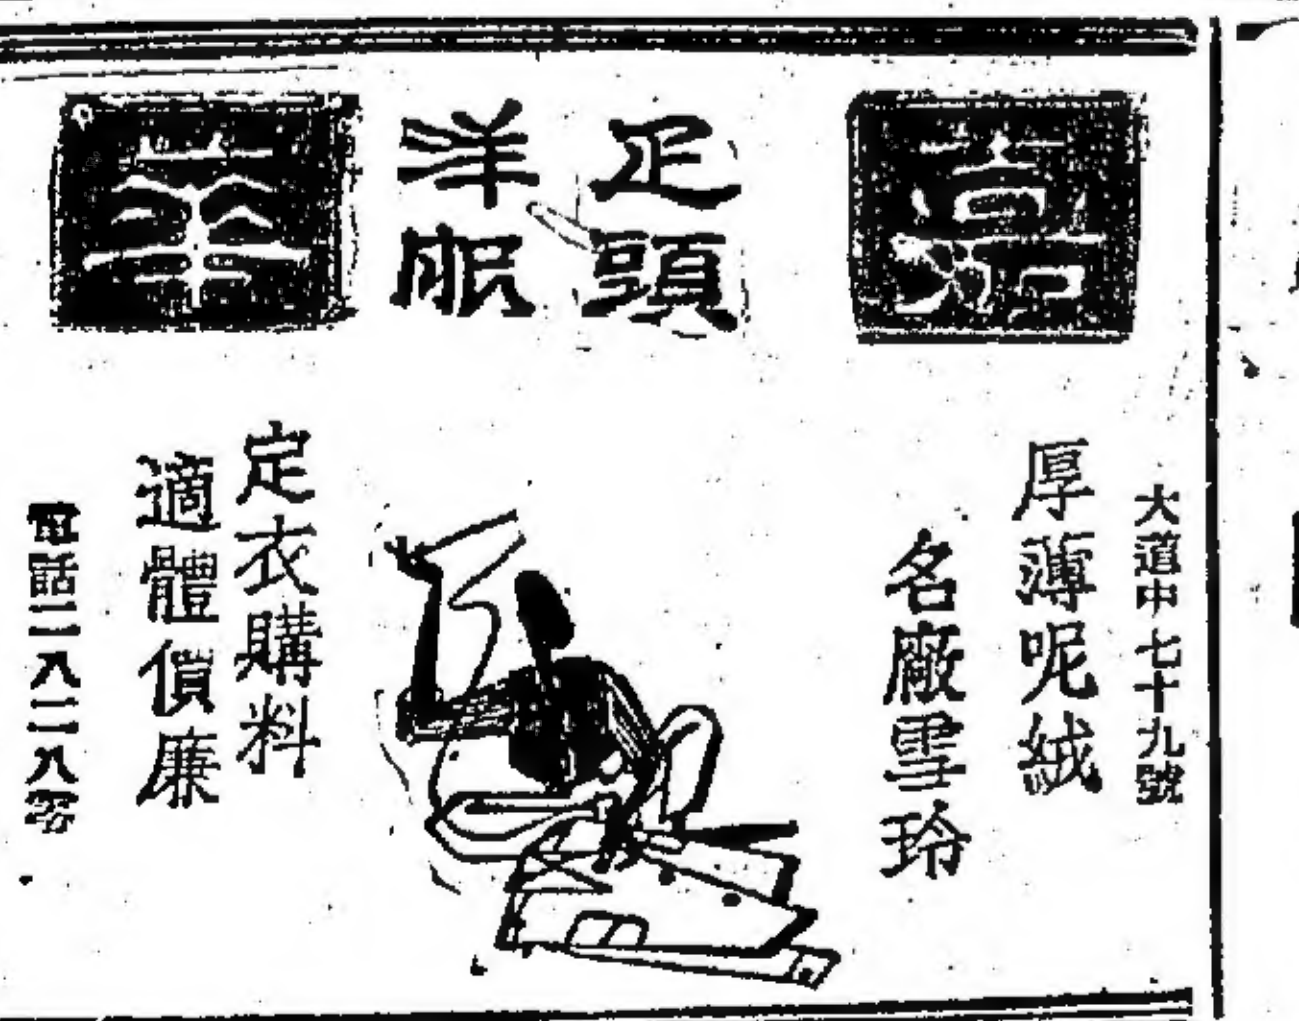 嘉
疋頭
洋服
華
大道中七十九號
厚薄呢絨
名廠雪玲
定衣購料
適體價廉
電話二八二八零